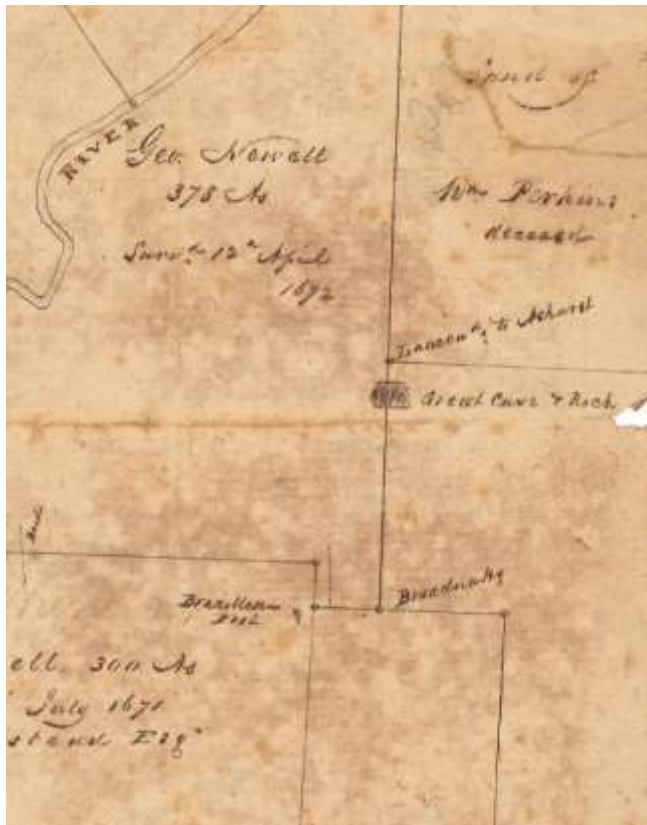 RIVER
Geo. Newell
375 As
Surv.d 12th April
1672
Land of
Wm Perkins
deceased
to Ashurst
Great Cave & Rock
Broadnax
Post
ell 300 As
July 1671
stead Esqr